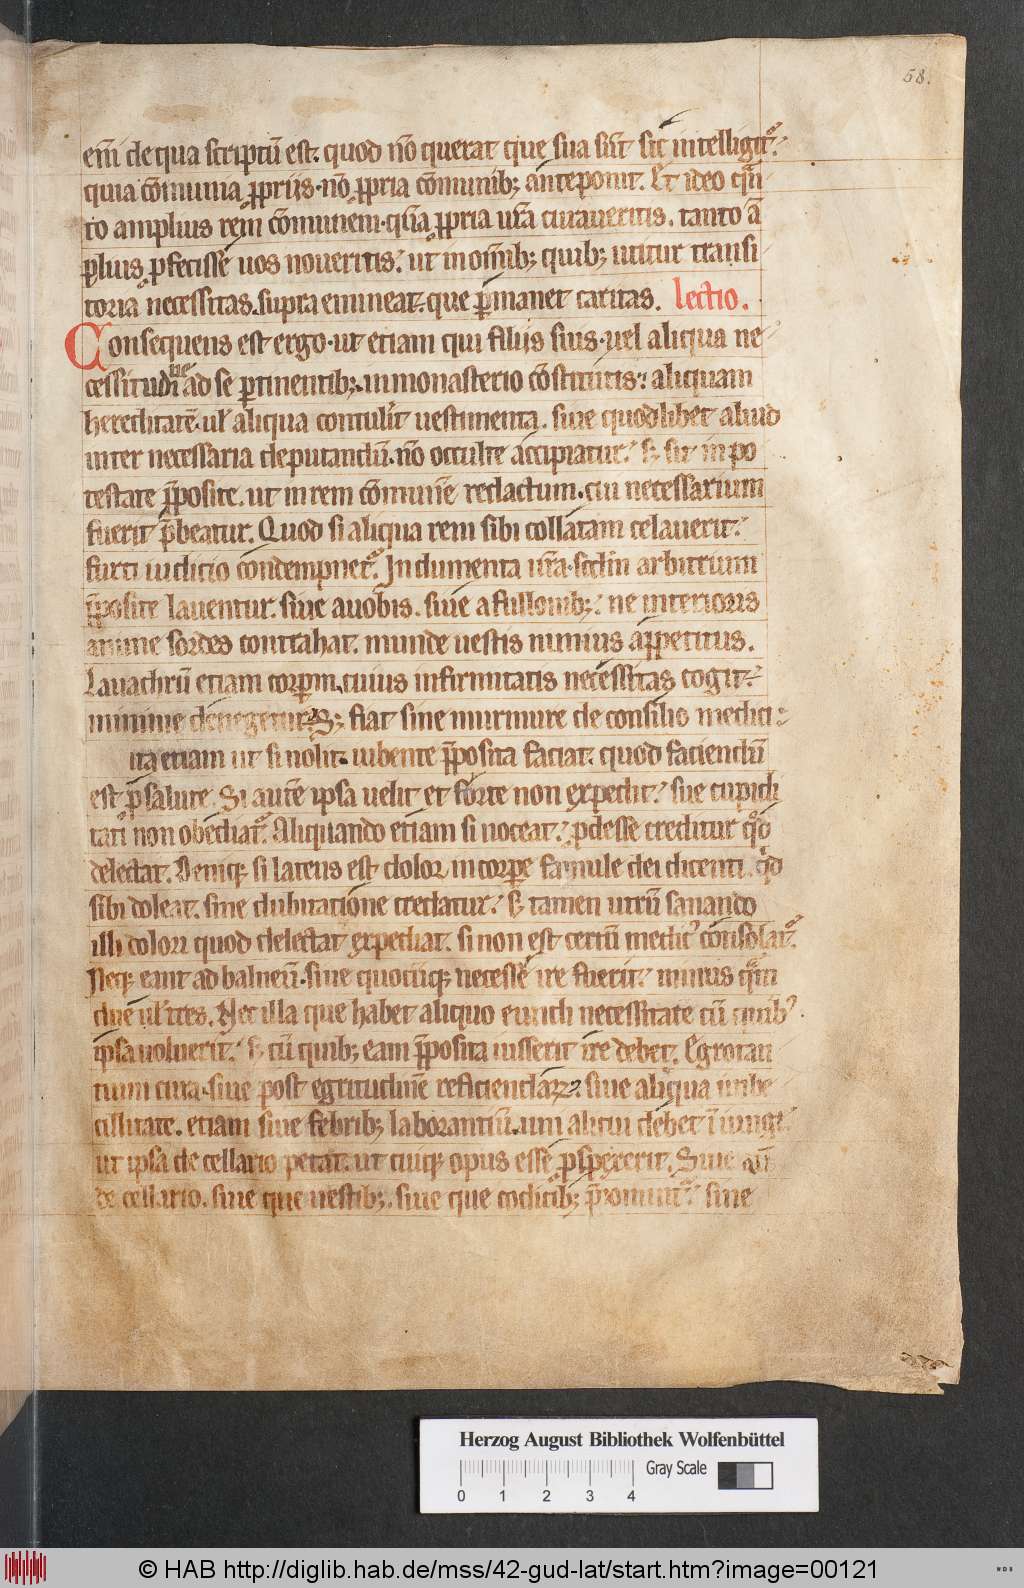 58.
em̄ de qua scriptū est. quod nō querat que sua sūt sic intelligit᷑.
quia cōmunia ꝓpriis. nō ꝓpria cōmunib; anteponit. Et ideo qͣn
to amplius rem cōmunem. qͣ̄ ꝓpria ur̄a curaueritis. tanto ā
plius ꝓfecisse uos noueritis. ut in om̄ib; quib; utitur transi
toria necessitas. supra emineat. que ꝑmanet caritas. lectio.
Consequens est ergo. ut etiam qui filiis suis. uel aliqua ne
cessitudine ad se ꝑtinentib;. in monasterio cōstitutis. aliquam
hereditatē. uł aliqua contulit uestimenta. siue quodlibet aliud
inter necessaria deputandū. nō occulte accipiatur. s; sit in po
testate p̄posite. ut in rem cōmunē redactum. cui necessarium
fuerit p̄beatur. Quod si aliqua rem sibi collatam celauerit.
furti iudicio condempnet᷑. Indumenta ur̄a. scđm arbitrium
p̄posite lauentur. siue a uob̄is. siue a fullonib;. ne interioris
anime sordes contrahat. munde uestis nimius appetitus.
Lauachrū etiam corpum. cuius infirmitatis necessitas cogit.
minime denegetur. S; fiat sine murmure de consilio medici
ita etiam ut si nolit. iubente p̄posita faciat. quod faciendū
est ꝓ salute. Si autē ipsa uelit et forte non expedit. sue cupidi
tati non obediat᷑. Aliquando etiam si noceat. ꝓdesse creditur qͦd
delectat. Deniqꝫ si latens est dolor in corpore famule dei dicenti qͦd
sibi doleat. sine dubitatione credatur. s; tamen utrū sanando
illi dolori quod delectat expediat. si non est certū medicꝰ consulat᷑.
Neqꝫ eant ad balneū. siue quocūqꝫ necesse ire fuerit. minus qͣm
due uł tres. Nec illa que habet aliquo eundi necessitate cū quibꝰ
ipsa uoluerit. s; cū quib; eam p̄posita iusserit ire debet. Egrotan
tium cura. siue post egritudinē reficiendaꝝ. siue aliqua inbe
cillitate. etiam siue febrib; laborantiū. uni alicui debet īiungi.
ut ipsa de cellario petat. ut cuiqꝫ opus esse ꝓspexerit. Siue aūt
de cellario. siue que uestib;. siue que codicib; p̄ponunt᷑. sine
Herzog August Bibliothek Wolfenbüttel
Gray Scale
0 1 2 3 4
© HAB http://diglib.hab.de/mss/42-gud-lat/start.htm?image=00121